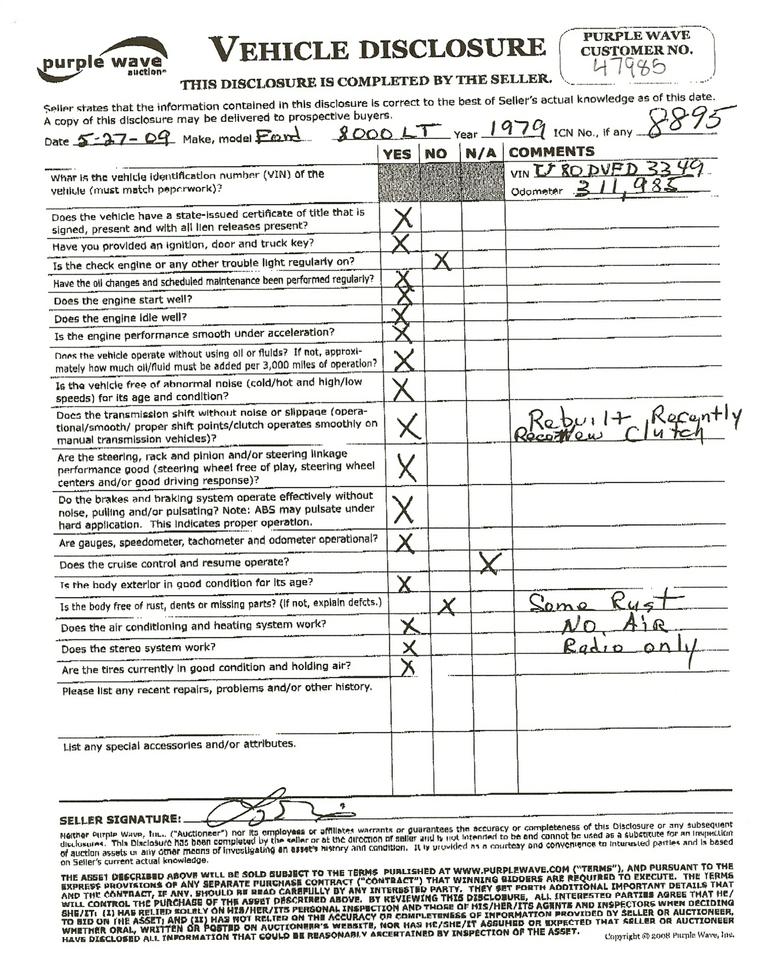 purple wave
auction
VEHICLE DISCLOSURE
THIS DISCLOSURE IS COMPLETED BY THE SELLER.
PURPLE WAVE
CUSTOMER NO.
47985
Seller states that the information contained in this disclosure is correct to the best of Seller's actual knowledge as of this date.
A copy of this disclosure may be delivered to prospective buyers.
Date 5-27-09 Make, model Ford 8000 LT Year 1979 ICN No., if any 8895
YES NO N/A COMMENTS
What is the vehicle identification number (VIN) of the
vehicle (must match paperwork)?
VIN U80DVFD3349
Odometer 311,983
Does the vehicle have a state-issued certificate of title that is
signed, present and with all lien releases present? X
Have you provided an ignition, door and truck key? X
Is the check engine or any other trouble light regularly on? X
Have the oil changes and scheduled maintenance been performed regularly? X
Does the engine start well? X
Does the engine idle well? X
Is the engine performance smooth under acceleration? X
Does the vehicle operate without using oil or fluids? If not, approxi-
mately how much oil/fluid must be added per 3,000 miles of operation? X
Is the vehicle free of abnormal noise (cold/hot and high/low
speeds) for its age and condition? X
Does the transmission shift without noise or slippage (opera-
tional/smooth/ proper shift points/clutch operates smoothly on
manual transmission vehicles)? X
Rebuilt Recently
New Clutch
Are the steering, rack and pinion and/or steering linkage
performance good (steering wheel free of play, steering wheel
centers and/or good driving response)? X
Do the brakes and braking system operate effectively without
noise, pulling and/or pulsating? Note: ABS may pulsate under
hard application. This indicates proper operation. X
Are gauges, speedometer, tachometer and odometer operational? X
Does the cruise control and resume operate? X
Is the body exterior in good condition for its age? X
Is the body free of rust, dents or missing parts? (if not, explain defcts.) X Some Rust
Does the air conditioning and heating system work? X No Air
Does the stereo system work? X Radio only
Are the tires currently in good condition and holding air? X
Please list any recent repairs, problems and/or other history.
List any special accessories and/or attributes.
SELLER SIGNATURE:
Neither Purple Wave, Inc. ("Auctioneer") nor its employees or affiliates warrants or guarantees the accuracy or completeness of this Disclosure or any subsequent
disclosures. This Disclosure has been completed by the seller or at the direction of seller and is not intended to be and cannot be used as a substitute for an inspection
of auction assets or any other means of investigating an asset's history and condition. It is provided as a courtesy and convenience to interested parties and is based
on Seller's current actual knowledge.
THE ASSET DESCRIBED ABOVE WILL BE SOLD SUBJECT TO THE TERMS PUBLISHED AT WWW.PURPLEWAVE.COM ("TERMS"), AND PURSUANT TO THE
EXPRESS PROVISIONS OF ANY SEPARATE PURCHASE CONTRACT ("CONTRACT") THAT WINNING BIDDERS ARE REQUIRED TO EXECUTE. THE TERMS
AND THE CONTRACT, IF ANY, SHOULD BE READ CAREFULLY BY ANY INTERESTED PARTY. THEY SET FORTH ADDITIONAL IMPORTANT DETAILS THAT
WILL CONTROL THE PURCHASE OF THE ASSET DESCRIBED ABOVE. BY REVIEWING THIS DISCLOSURE, ALL INTERESTED PARTIES AGREE THAT HE/
SHE/IT: (I) HAS RELIED SOLELY ON HIS/HER/ITS PERSONAL INSPECTION AND THOSE OF HIS/HER/ITS AGENTS AND INSPECTORS WHEN DECIDING
TO BID ON THE ASSET; AND (II) HAS NOT RELIED ON THE ACCURACY OR COMPLETENESS OF INFORMATION PROVIDED BY SELLER OR AUCTIONEER,
WHETHER ORAL, WRITTEN OR POSTED ON AUCTIONEER'S WEBSITE, NOR HAS HE/SHE/IT ASSUMED OR EXPECTED THAT SELLER OR AUCTIONEER
HAVE DISCLOSED ALL INFORMATION THAT COULD BE REASONABLY ASCERTAINED BY INSPECTION OF THE ASSET.
Copyright © 2008 Purple Wave, Inc.